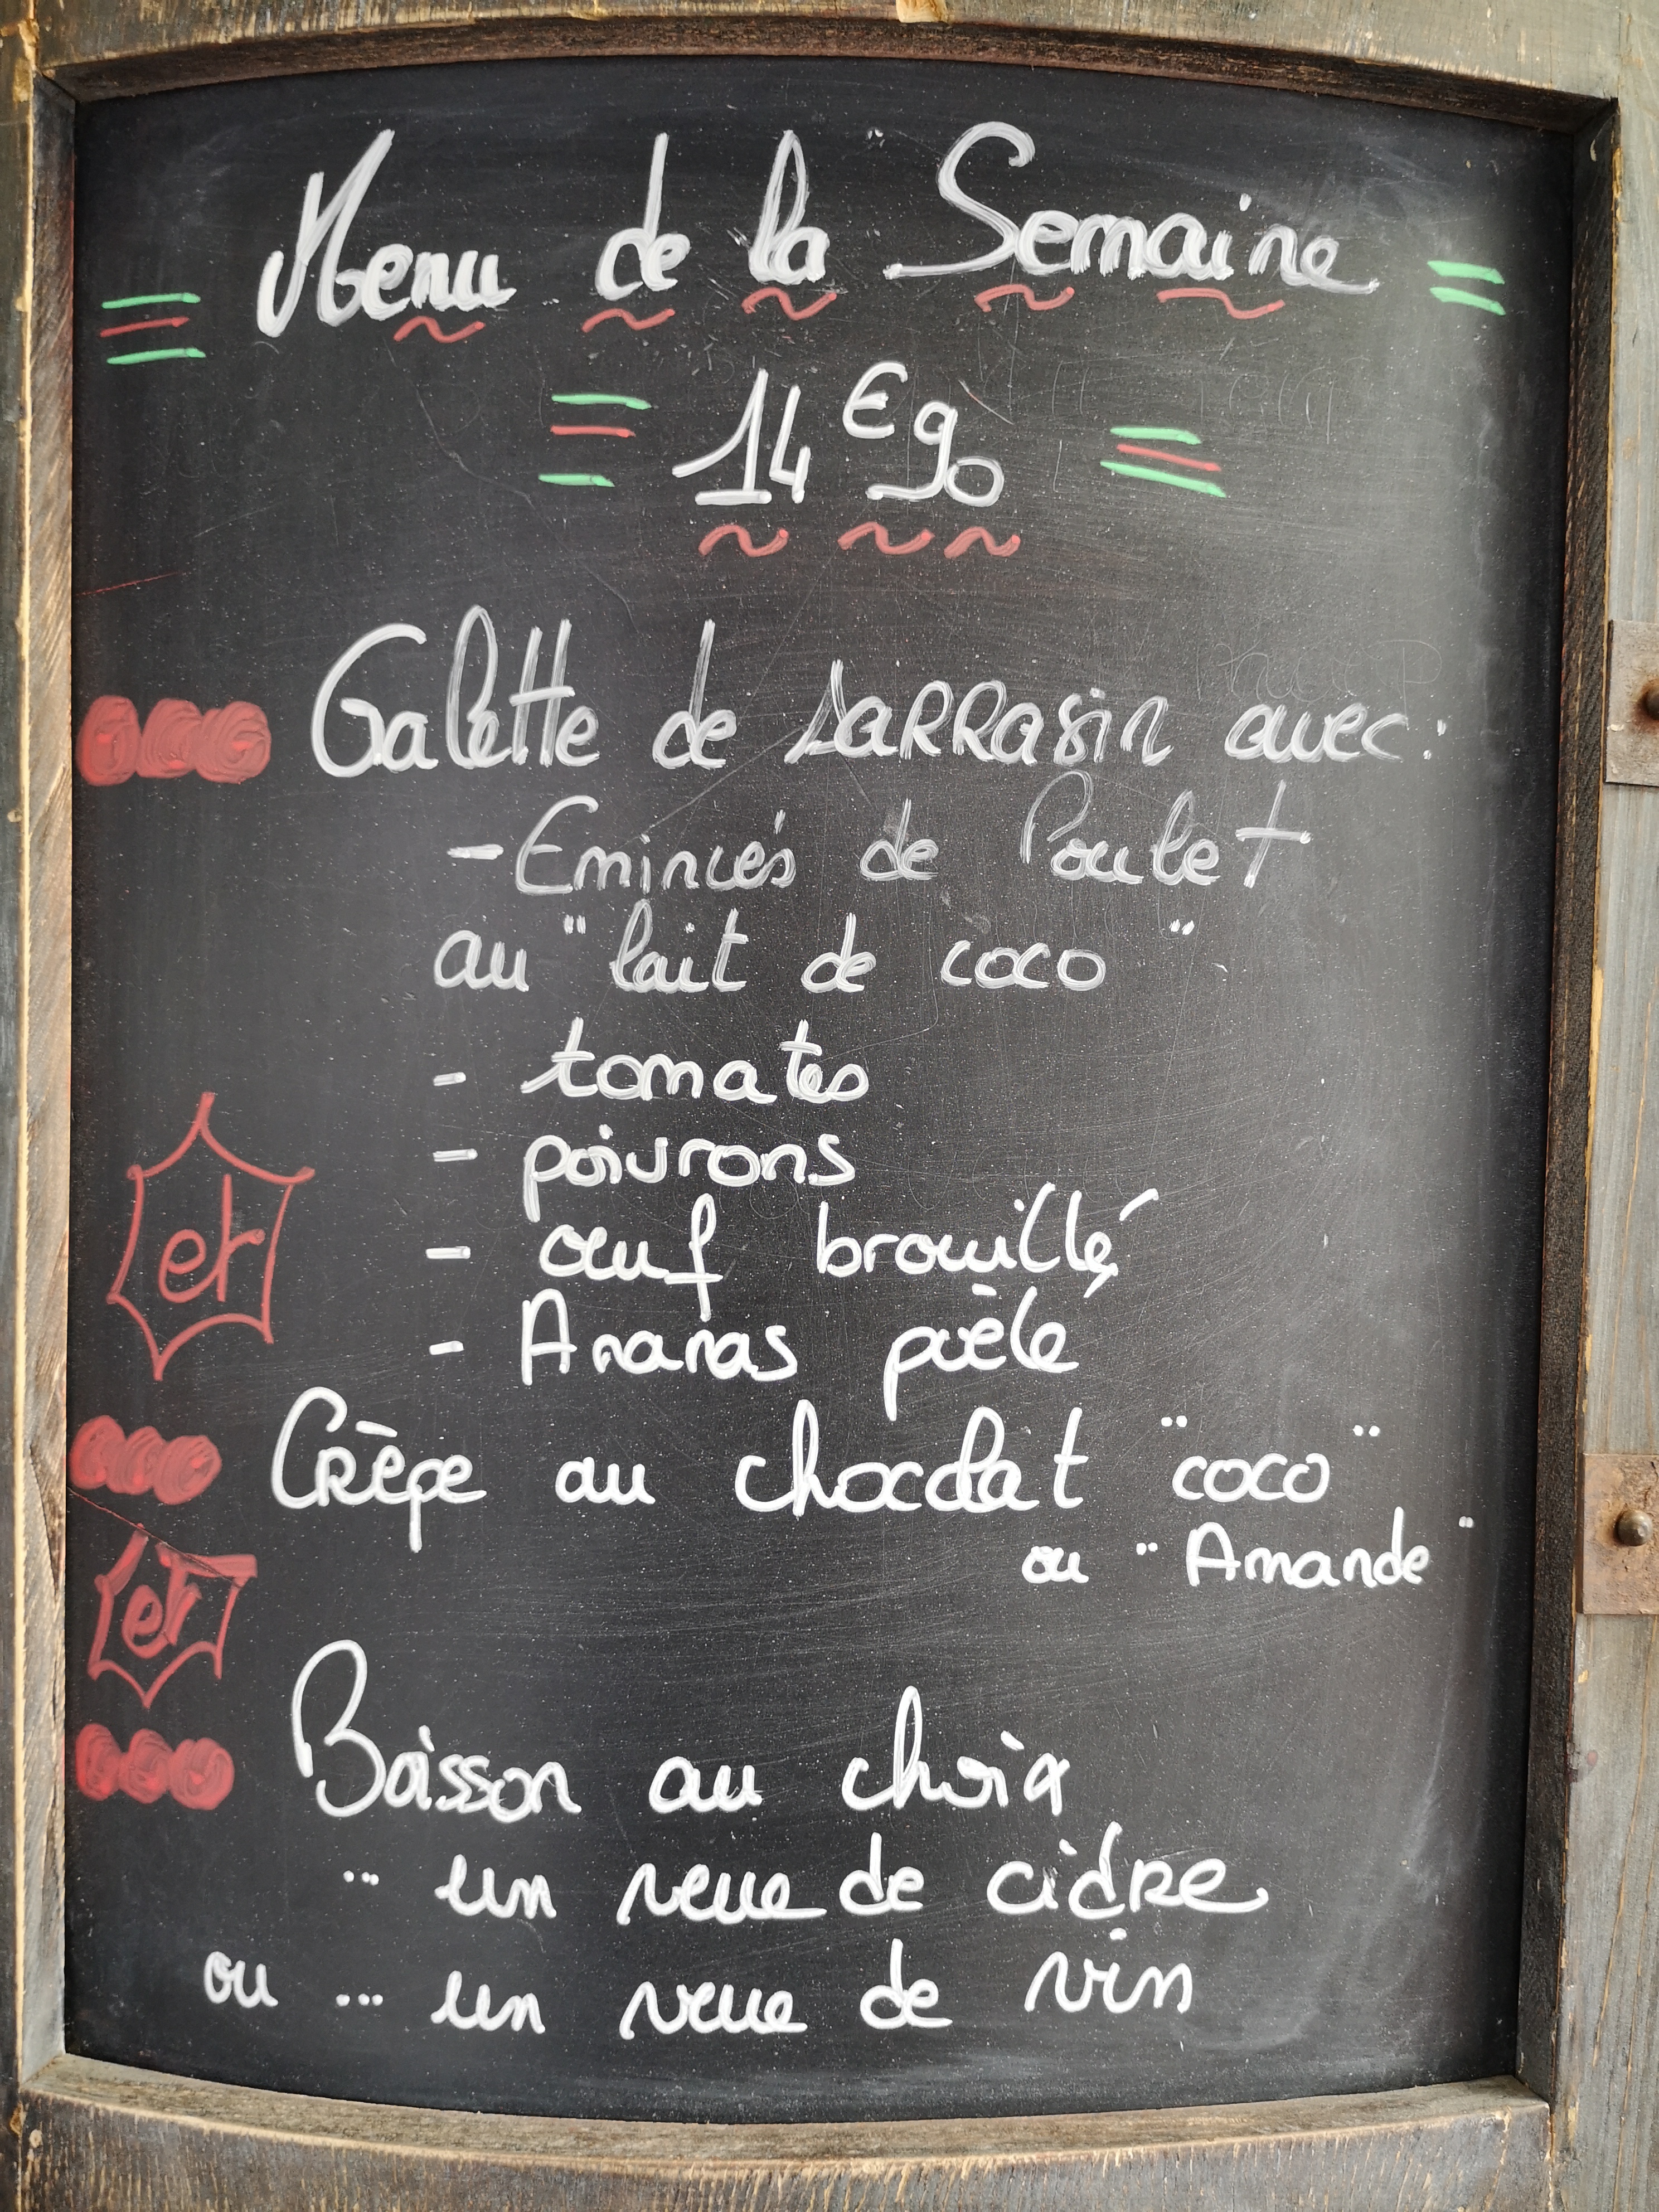 Menu de la Semaine
14€90
Galette de sarrasin avec:
- Emincés de Poulet
au "lait de coco"
- tomates
- poivrons
et
- œuf brouillé
- Ananas poêlé
Crêpe au chocolat "coco"
ou "Amande"
et
Boisson au choix
... un verre de cidre
ou ... un verre de vin